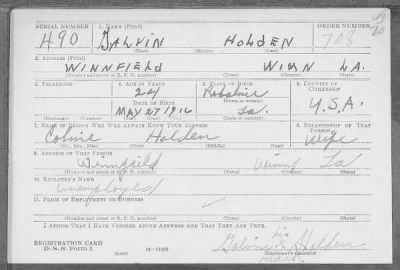 SERIAL NUMBER 1. NAME (Print) ORDER NUMBER
490 GALVIN HOLDEN 708
(First) (Middle) (Last)
2. ADDRESS (Print)
WINNFIELD WINN LA.
(Number and street or R. F. D. number) (Town) (County) (State)
3. TELEPHONE 4. AGE IN YEARS 5. PLACE OF BIRTH 6. COUNTRY OF CITIZENSHIP
24
DATE OF BIRTH (Town or county)
MAY 27 1916 La. U.S.A.
(Exchange) (No.) (Mo.) (Day) (Yr.) (State or country)
7. NAME OF PERSON WHO WILL ALWAYS KNOW YOUR ADDRESS 8. RELATIONSHIP OF THAT PERSON
Holden Wife
(Mr., Mrs., Miss) (First) (Middle) (Last)
9. ADDRESS OF THAT PERSON
Winnfield Winn La
(Number and street or R. F. D. number) (Town) (County) (State)
10. EMPLOYER'S NAME
Unemployed
11. PLACE OF EMPLOYMENT OR BUSINESS
(Number and street or R. F. D. number) (Town) (County) (State)
I AFFIRM THAT I HAVE VERIFIED ABOVE ANSWERS AND THAT THEY ARE TRUE.
REGISTRATION CARD
D. S. S. Form 1 (over)
his
Galvin X Holden
mark
(Registrant's signature)